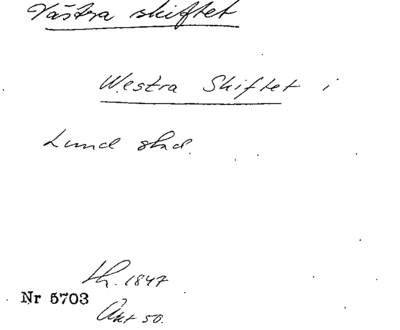 Västra skiftet
Westra Skiftet i
Lund stad.
th. 1847
Nr 5703
Akt 50.